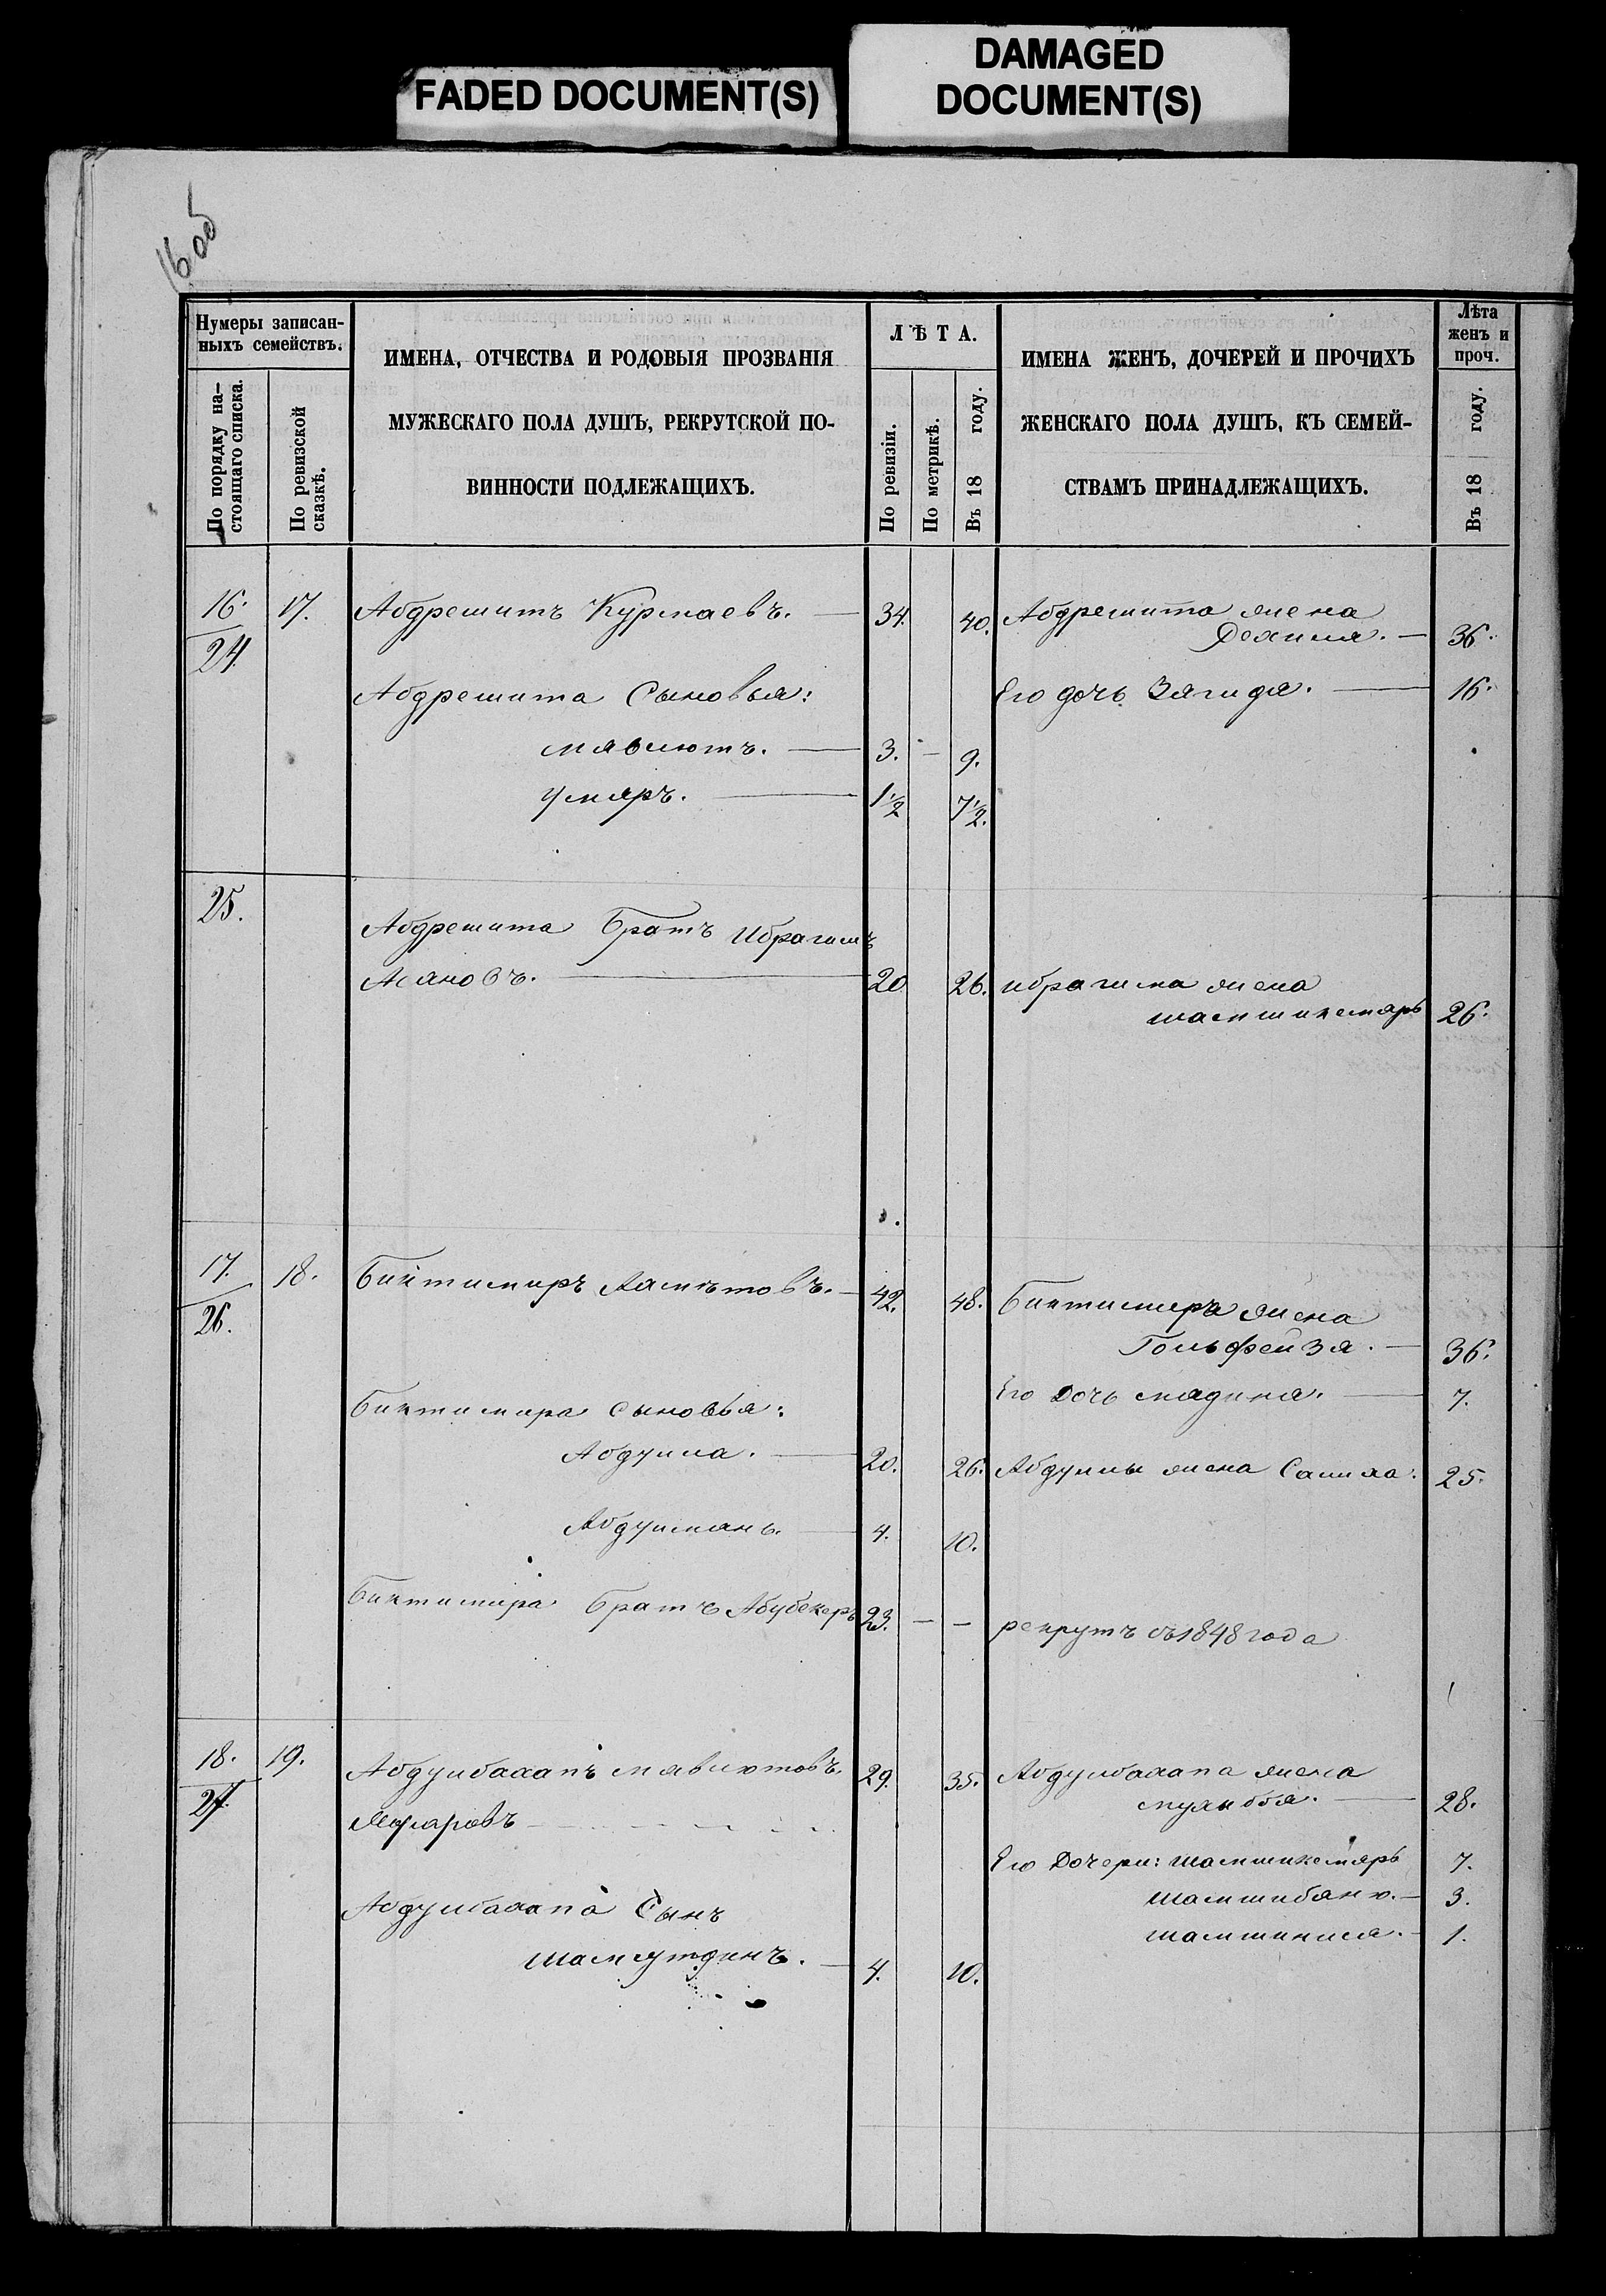 FADED DOCUMENT(S)
DAMAGED
DOCUMENT(S)
16 об
Нумеры записан-
ныхъ семействъ.
По порядку на-
стоящаго списка.
По ревизской
сказкѣ.
ИМЕНА, ОТЧЕСТВА И РОДОВЫЯ ПРОЗВАНІЯ
МУЖЕСКАГО ПОЛА ДУШЪ, РЕКРУТСКОЙ ПО-
ВИННОСТИ ПОДЛЕЖАЩИХЪ.
ЛѢТА.
По ревизіи.
По метрикѣ.
Въ 18 году.
ИМЕНА ЖЕНЪ, ДОЧЕРЕЙ И ПРОЧИХЪ
ЖЕНСКАГО ПОЛА ДУШЪ, КЪ СЕМЕЙ-
СТВАМЪ ПРИНАДЛЕЖАЩИХЪ.
Лѣта
женъ и
проч.
Въ 18 году.
16. 17. Абдрешитъ Курмаевъ. — 34. 40. Абдрешита жена
24. — 36.
Абдрешита Сыновья: Его дочь Зягидя. — 16.
мявлютъ. — 3. — 9.
умяръ. — 1½ 7½.
25.
Абдрешита Братъ Ибрагимъ
Асяновъ. — 20 26. ибрагима жена
шамшикемяръ 26.
17. 18. Биктимиръ Аямѣтовъ. — 42. 48. Биктимера жена
26. Гольфейзя. — 36.
Его Дочь мадиня. — 7.
Биктимира Сыновья:
Абдулла. — 20. 26. Абдуллы жена Салиха. 25.
Абдулманъ. — 4. 10.
Биктимира Братъ Абубекеръ 23. — — рекрутъ съ 1848 года
18. 19. Абдулвахапъ мявлютовъ. 29. 35. Абдулвахапа жена
27. — 28.
Его Дочери: шамшикемяръ 7.
Абдулвахапа Сынъ шамшибяню. — 3.
шамсутдинъ. — 4. 10. — 1.